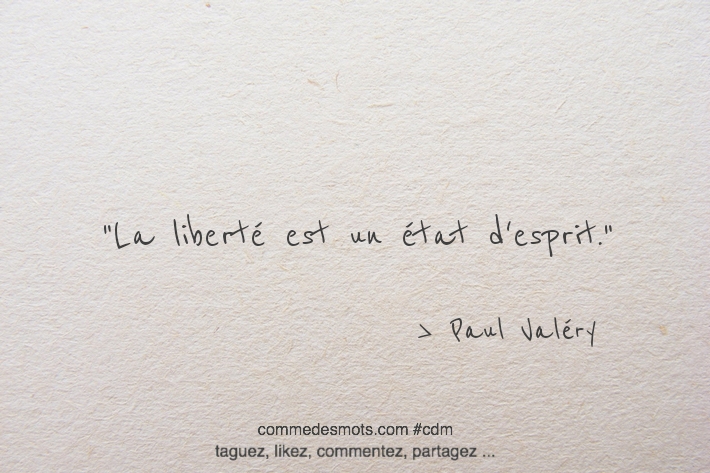 "La liberté est un état d'esprit."
> Paul Valéry
commedesmots.com #cdm
taguez, likez, commentez, partagez ...